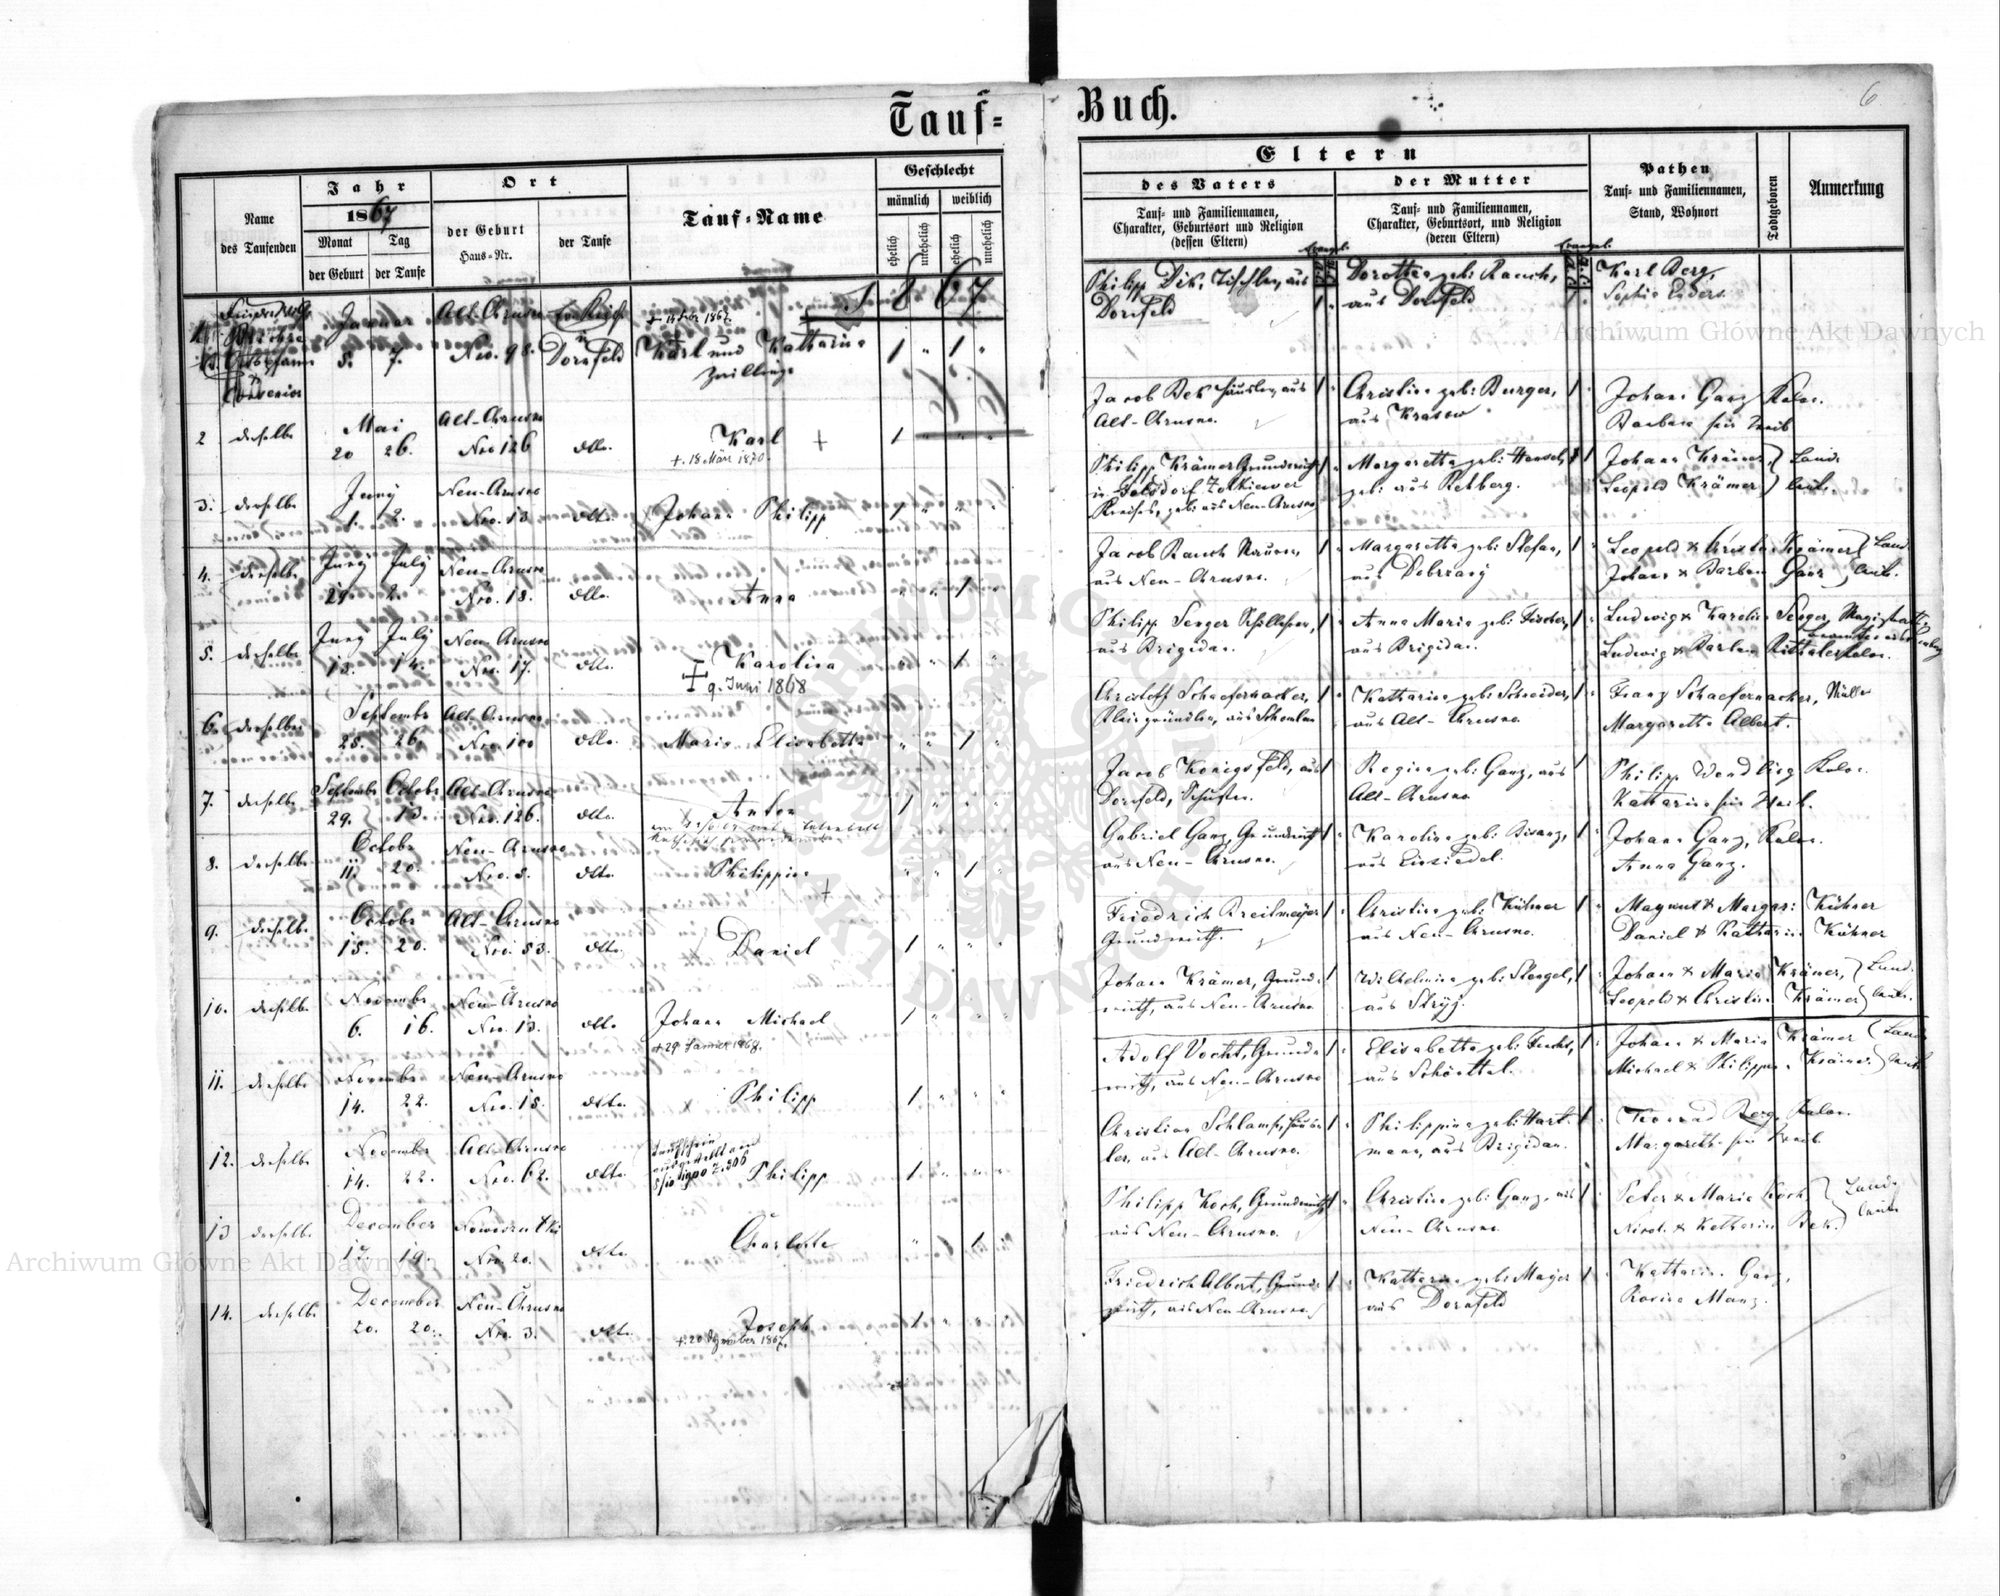 Tauf-Buch.
6
Name
des Taufenden
Jahr
1867
Monat
der Geburt
Tag
der Taufe
Ort
der Geburt
Haus-Nr.
der Taufe
Tauf-Name
Geschlecht
männlich
weiblich
ehelich
unehelich
ehelich
unehelich
Eltern
des Vaters
Tauf- und Familiennamen,
Charakter, Geburtsort und Religion
(dessen Eltern)
der Mutter
Tauf- und Familiennamen,
Charakter, Geburtsort, und Religion
(deren Eltern)
Pathen
Tauf- und Familiennamen,
Stand, Wohnort
Todtgeboren
Anmerkung
1867.
Januar
5. 7.
Alt-Chrusno
Nro. 98.
Dornfeld
Karl und Katharina
Zwillinge
Philipp Dik, Tischler, aus
Dornfeld
Dorothea geb: Rauch,
aus Dornfeld
Karl Berg,
Sophia Enders.
2 derselbe
Mai
20 26.
Alt-Chrusno
Nro 126
dtto.
Karl +
+. 18 März 1870.
Jacob Bek Häusler, aus
Alt-Chrusno.
Christina geb: Burger,
aus Krasow
Johann Ganz Kolon.
Barbara sein Weib
3. derselbe
Juny
1. 2.
Neu-Chrusno
Nro. 13
dtto.
Johann Philipp
Philipp Krämer Grundwirth
in Zolkiewer
Kreises, geb: aus Neu-Chrusno
Margaretha geb: Hensel,
geb: aus Rehberg.
Johann Krämer
Leopold Krämer
Land-
leute.
4. derselbe
Juny July
29. 2.
Neu-Chrusno
Nro. 18.
dtto.
Anna
Jacob Rauch
aus Neu-Chrusno.
Margaretha geb: Stefan,
aus Dobrzany
Leopold & Christina Krämer
Johann & Barbara Ganz
Land-
leute.
5. derselbe
Juny July
13. 14.
Neu-Chrusno
Nro. 17.
dtto.
Karolina
9. Juni 1868
Philipp Senger Schullehrer,
aus Brigidau.
Anna Maria geb: Fischer,
aus Brigidau.
Ludwig & Karolina Senger,
Ludwig & Barbara
6. derselbe
September
25. 26.
Alt-Chrusno
Nro 100
dtto.
Maria Elisabetha
Christoff Schaefernacker,
Kleingründler, aus
Katharina geb: Schneider,
aus Alt-Chrusno.
Franz Schaefernacker, Müller
Margaretha Albert.
7. derselbe
September October
29. 13.
Alt-Chrusno
Nro. 126.
dtto.
Anton
Jacob Königsfeld, aus
Dornfeld, Schuster.
Regina geb: Ganz, aus
Alt-Chrusno
Philipp Wendling Kolon.
Katharina sein Weib.
8. derselbe
October
11. 20.
Neu-Chrusno
Nro. 5.
dtto.
Philippina
Gabriel Ganz, Grundwirth
aus Neu-Chrusno.
Karolina geb: Bisanz,
aus Einsiedel.
Johann Ganz, Kolon.
Anna Ganz.
9. derselbe
October
15. 20.
Alt-Chrusno
Nro. 53.
dtto.
Daniel
Friedrich Breitmeyer
Grundwirth.
Christina geb: Kühner
aus Neu-Chrusno.
Magnus & Margar: Kühner
Daniel & Katharina Kühner
10. derselbe
November
6. 16.
Neu-Chrusno
Nro. 13.
dtto.
Johann Michael
+29 Januar 1868.
Johann Krämer, Grund-
wirth, aus Neu-Chrusno
Wilhelmina geb: Stengel,
aus Stryj.
Johann & Maria Krämer,
Leopold & Christina Krämer
Land-
leute.
11. derselbe
November
14. 22.
Neu-Chrusno
Nro. 15.
dtto.
Philipp
Adolf Vocht, Grund-
wirth, aus Neu-Chrusno
Elisabetha geb: Fuchs,
aus Schönthal.
Johann & Maria Krämer
Michael & Philippina Krämer
Land-
leute
12. derselbe
November
14. 22.
Alt-Chrusno
Nro. 62.
dtto.
Taufschein
ausgestellt am
Philipp
Christian Schlamp, Häus-
ler, aus Alt-Chrusno.
Philippina geb: Hart-
mann, aus Brigidau.
Konrad Berg, Kolon.
Margaretha sein Weib.
13 derselbe
December
17. 19.
Nro. 20.
dtto.
Charlotte
Philipp Koch, Grundwirth
aus Neu-Chrusno.
Christina geb: Ganz, aus
Neu-Chrusno
Peter & Maria Koch,
Nicol. & Katharina Bek.
Land-
leute
14. derselbe
December
20. 20.
Neu-Chrusno
Nro. 3.
dtto.
Joseph
+. 20 Dezember 1867.
Friedrich Albert, Grund-
wirth, aus Neu-Chrusno
Katharina geb: Mayer
aus Dornfeld
Katharina Ganz,
Rosina Manz.
Archiwum Główne Akt Dawnych
Archiwum Główne Akt Dawnych
ARCHIWUM GŁÓWNE AKT DAWNYCH